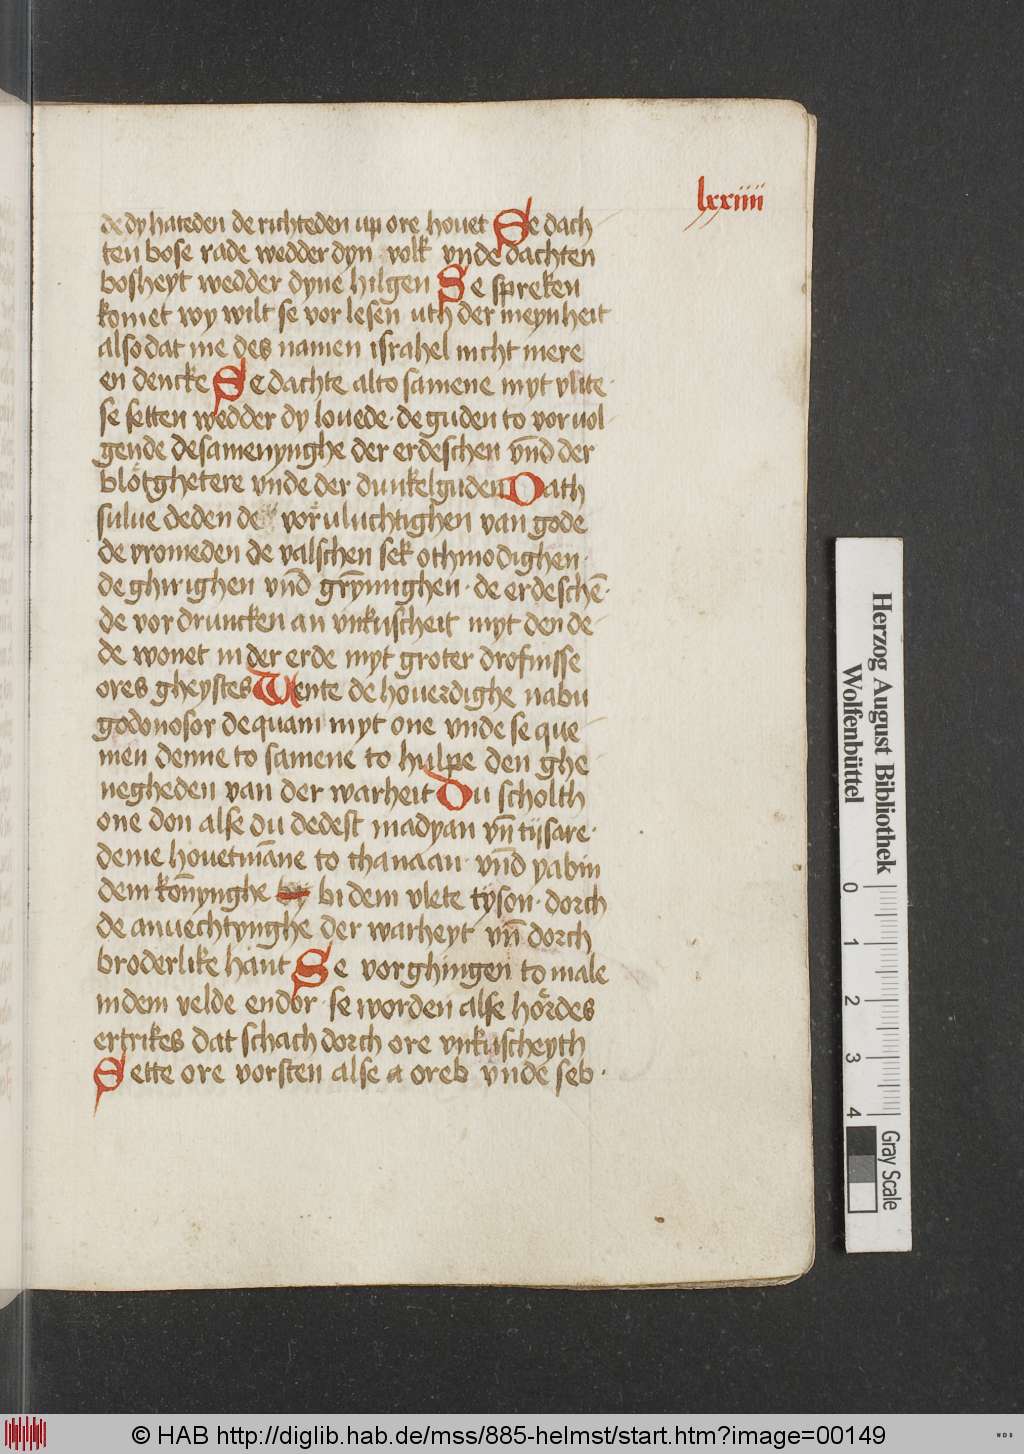 lxxiiii
de dy hateden de richteden up ore houet Se dach
ten bose rade wedder dyn volk vnde dachten
bosheyt wedder dyne hilgen Se spreken
komet wy wilt se vor lesen uth der meynheit
also dat me des namen israhel nicht mere
en dencke Se dachte alto samene myt vlite
se setten wedder dy louede · de guden to vor uol
gende de samenynghe der erdeschen vn̄d der
blötghetere vnde der dunkelguden Dath
sulue deden de vor uluchtighen van gode
de vromeden de valschen sek othmodighen ·
de ghirighen vn̄d grȳmighen · de erdeschē ·
de vor druncken an vnkuscheit myt den de
de wonet in der erde myt groter drofnisse
ores gheystes Wente de houerdighe nabu
godonosor de quam myt one vnde se que
men denne to samene to hulpe den ghe
negheden van der warheit Du scholth
one don alse du dedest madyan vn̄ tijsare ·
deme houetmāne to chanaan · vn̄d yabin
dem kon̄ynghe by bi dem vlete tyson · dorch
de anuechtynghe der warheyt vn̄ dorch
broderlike hant Se vorghingen to male
in dem velde endor · se worden alse hördes
ertrikes dat schach dorch ore vnkuscheyth
Sette ore vorsten alse a oreb vnde seb ·
Herzog August Bibliothek
Wolfenbüttel
0 1 2 3 4
Gray Scale
© HAB http://diglib.hab.de/mss/885-helmst/start.htm?image=00149